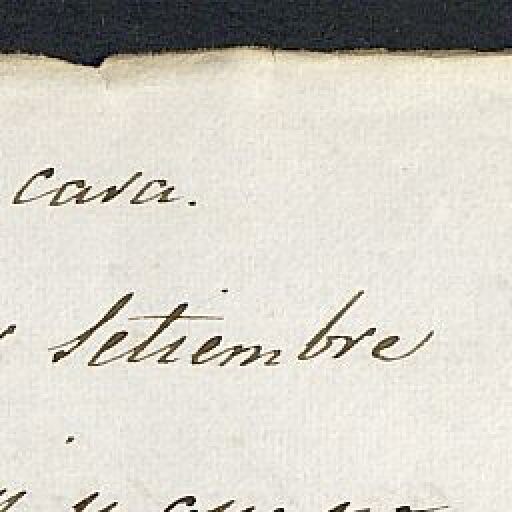 cara.
Setiembre
y